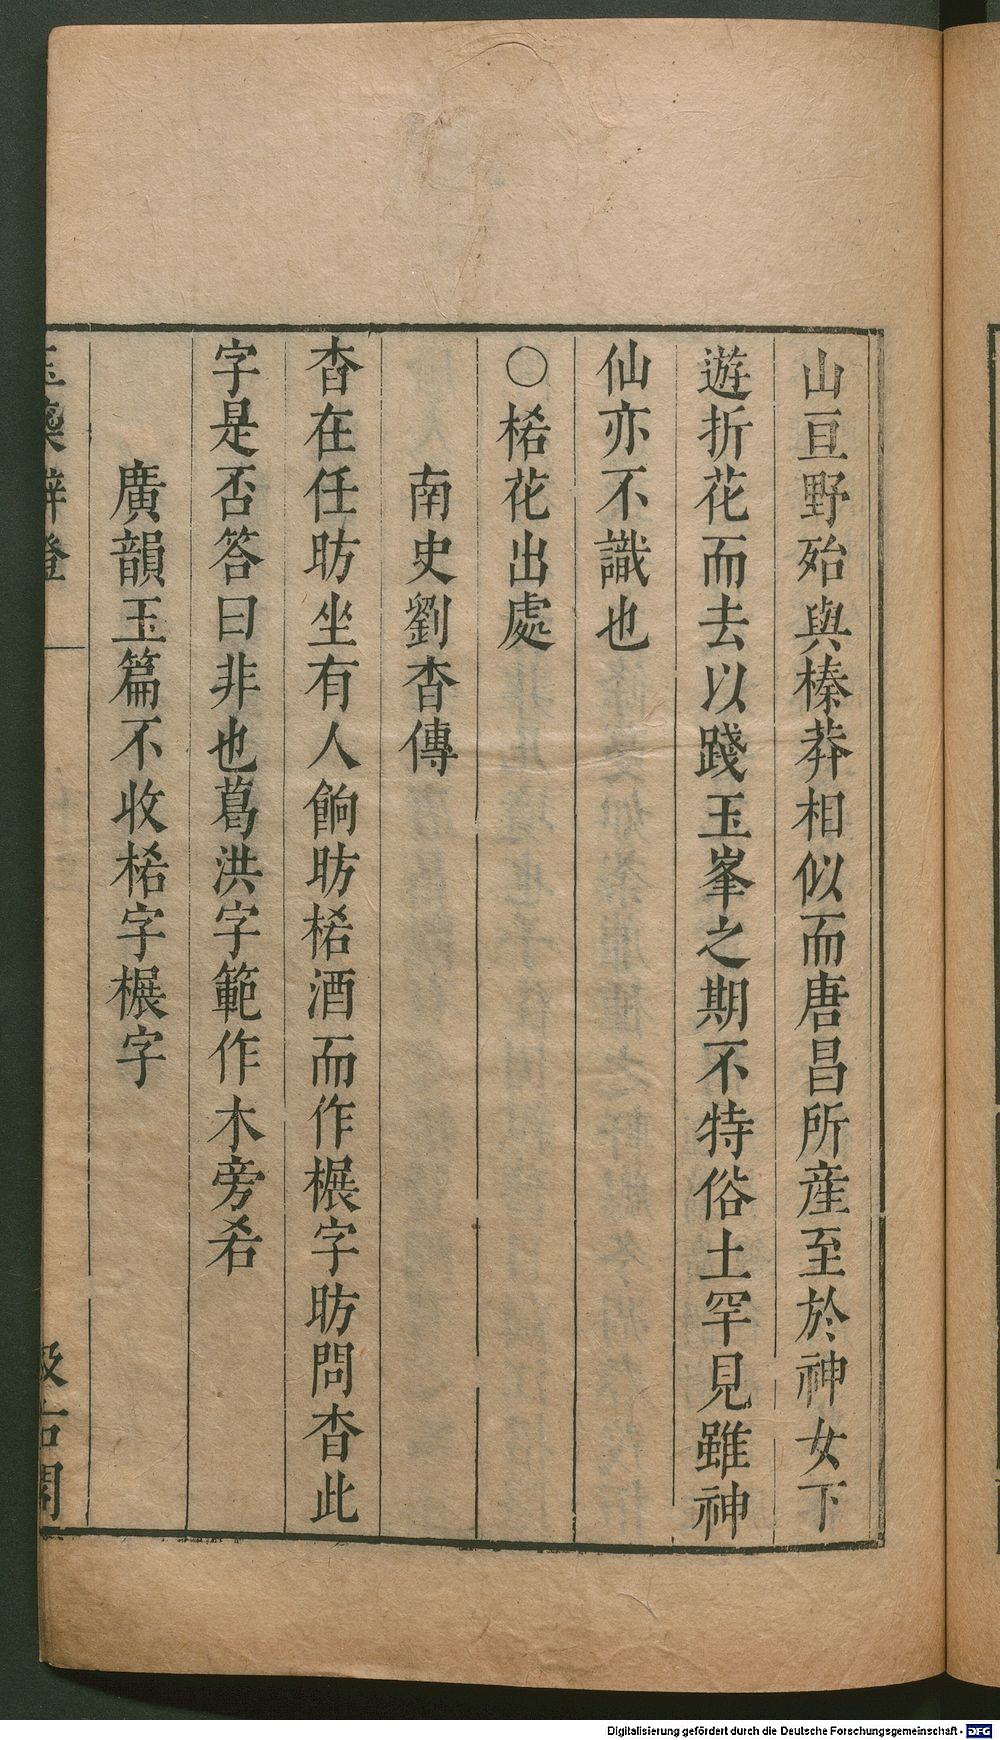 山亘野殆與榛莽相似而唐昌所産至於神女下
遊折花而去以踐玉峯之期不特俗土罕見雖神
仙亦不識也
○桰花出處
南史劉杳傳
杳在任昉坐有人餉昉桰酒而作榐字昉問杳此
字是否答曰非也葛洪字範作木旁㕻
廣韻玉篇不收桰字榐字
玉蘂辨證
汲古閣
Digitalisierung gefördert durch die Deutsche Forschungsgemeinschaft - DFG